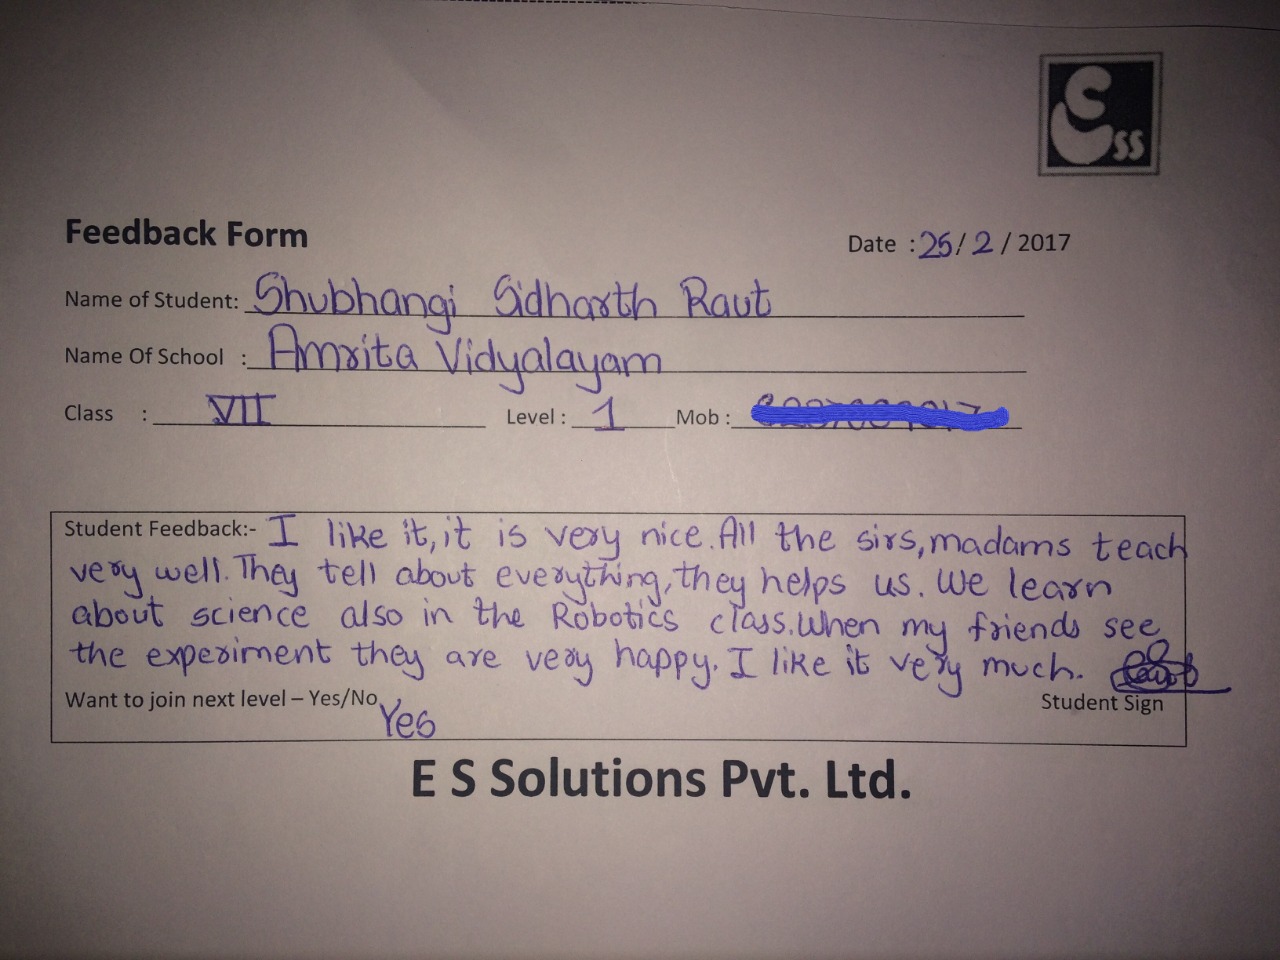 ESS
Feedback Form
Date : 25/2/2017
Name of Student: Shubhangi Sidharth Raut
Name Of School : Amrita Vidyalayam
Class : VII Level : 1 Mob :
Student Feedback:- I like it, it is very nice. All the sirs, madams teach
very well. They tell about everything, they helps us. We learn
about science also in the Robotics class. When my friends see
the experiment they are very happy. I like it very much.
Want to join next level – Yes/No Yes
Student Sign
E S Solutions Pvt. Ltd.